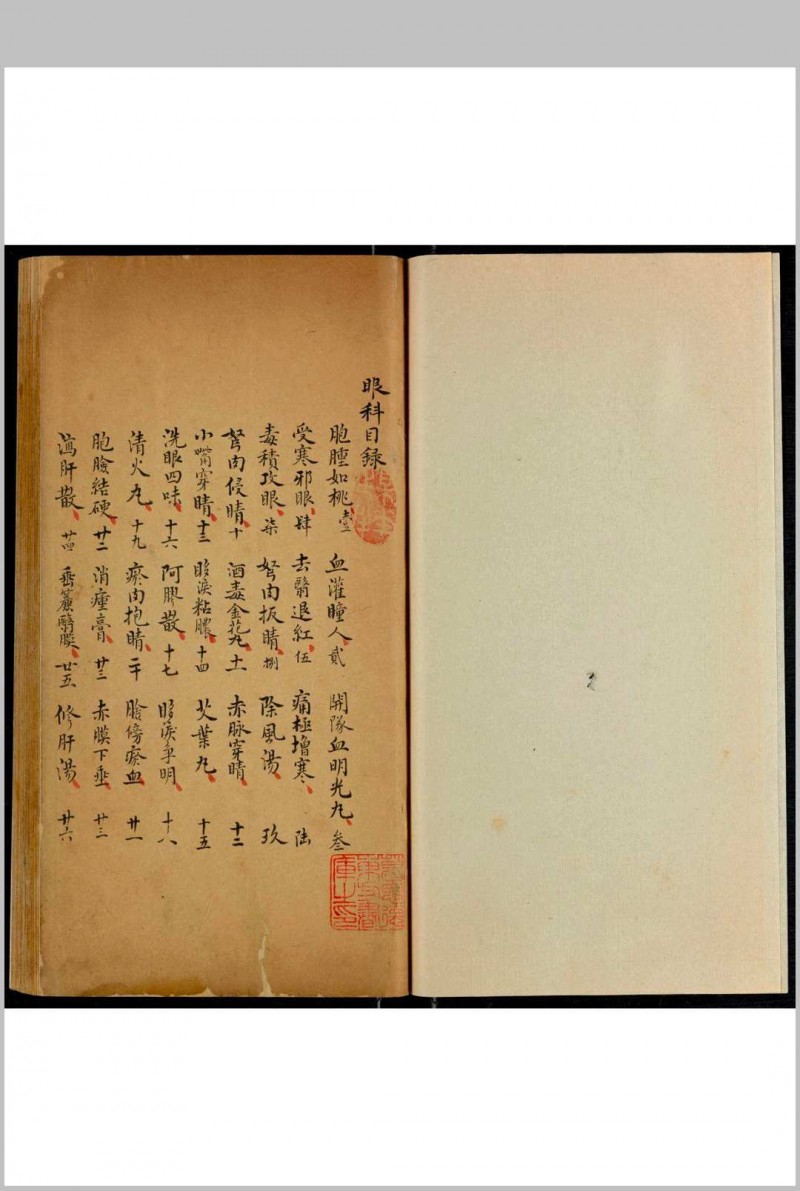 眼科目錄
胞腫如桃 壹 血灌瞳人 貳 開隊血明光丸 叁
受寒邪眼 肆 去翳退紅 伍 痛極增寒 陸
毒積攻眼 柒 努肉扳睛 捌 除風湯 玖
努肉侵睛 十 酒毒金花丸 土 赤脉穿睛 十二
小嘴穿睛 十三 眵淚粘膿 十四 艾葉丸 十五
洗眼四味 十六 阿膠散 十七 眵淚爭明 十八
清火丸 十九 瘀肉抱睛 二十 臉傍瘀血 廿一
胞臉結硬 廿二 消瘇膏 廿三 赤膜下垂 廿三
瀉肝散 廿四 垂簾翳膜 廿五 修肝湯 廿六